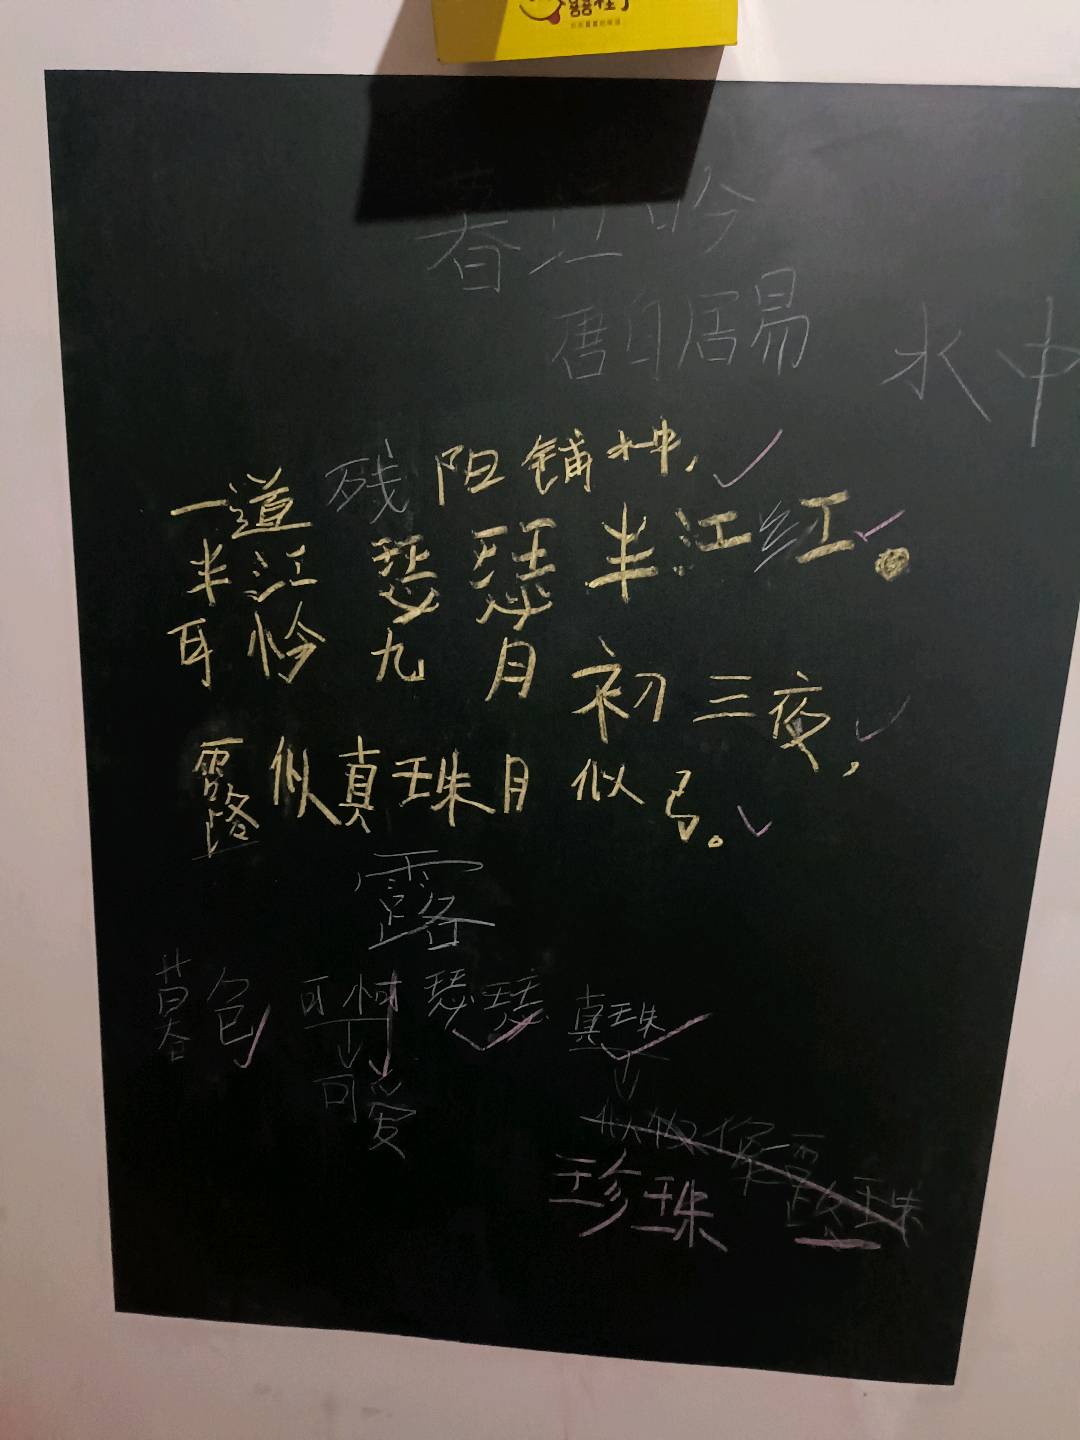 春江吟
唐白居易
水中
一道残阳铺水中,
半江瑟瑟半江红。
可怜九月初三夜,
露似真珠月似弓。
露
暮色 可怜 瑟瑟 真珠
可爱
似似像露珠
珍珠